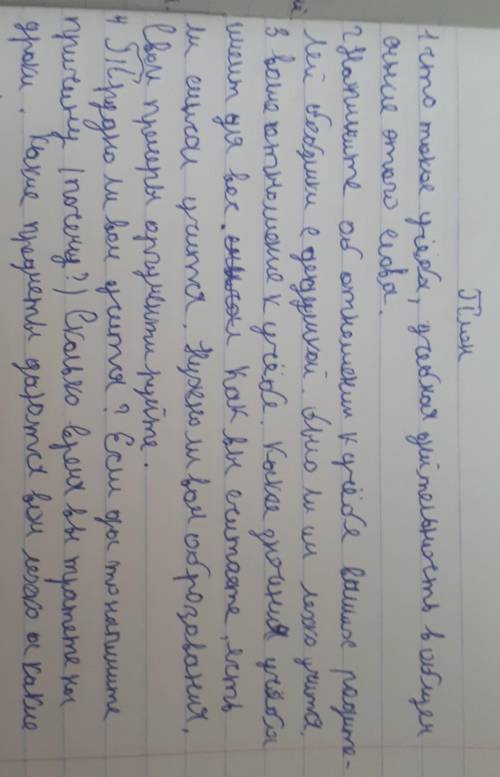 План
1 что такое учёба, учебная деятельность в общем
знание этого слова.
2 Напишите об отношении к учёбе ваших родите-
лей бабушки с дедушкой. Было ли им легко учится.
3 ваше отношение к учёбе. Какое значения учёба
имеит для вас. Как вы считаете, есть
ли смысл учится. Нужно ли вам оброзования,
Свои примеры аргументируйте.
4 Трудно ли вам учится? Если да то напишите
причину (почему?) Сколько время вы тратете на
уроки. Какие предметы даются вам легко а какие